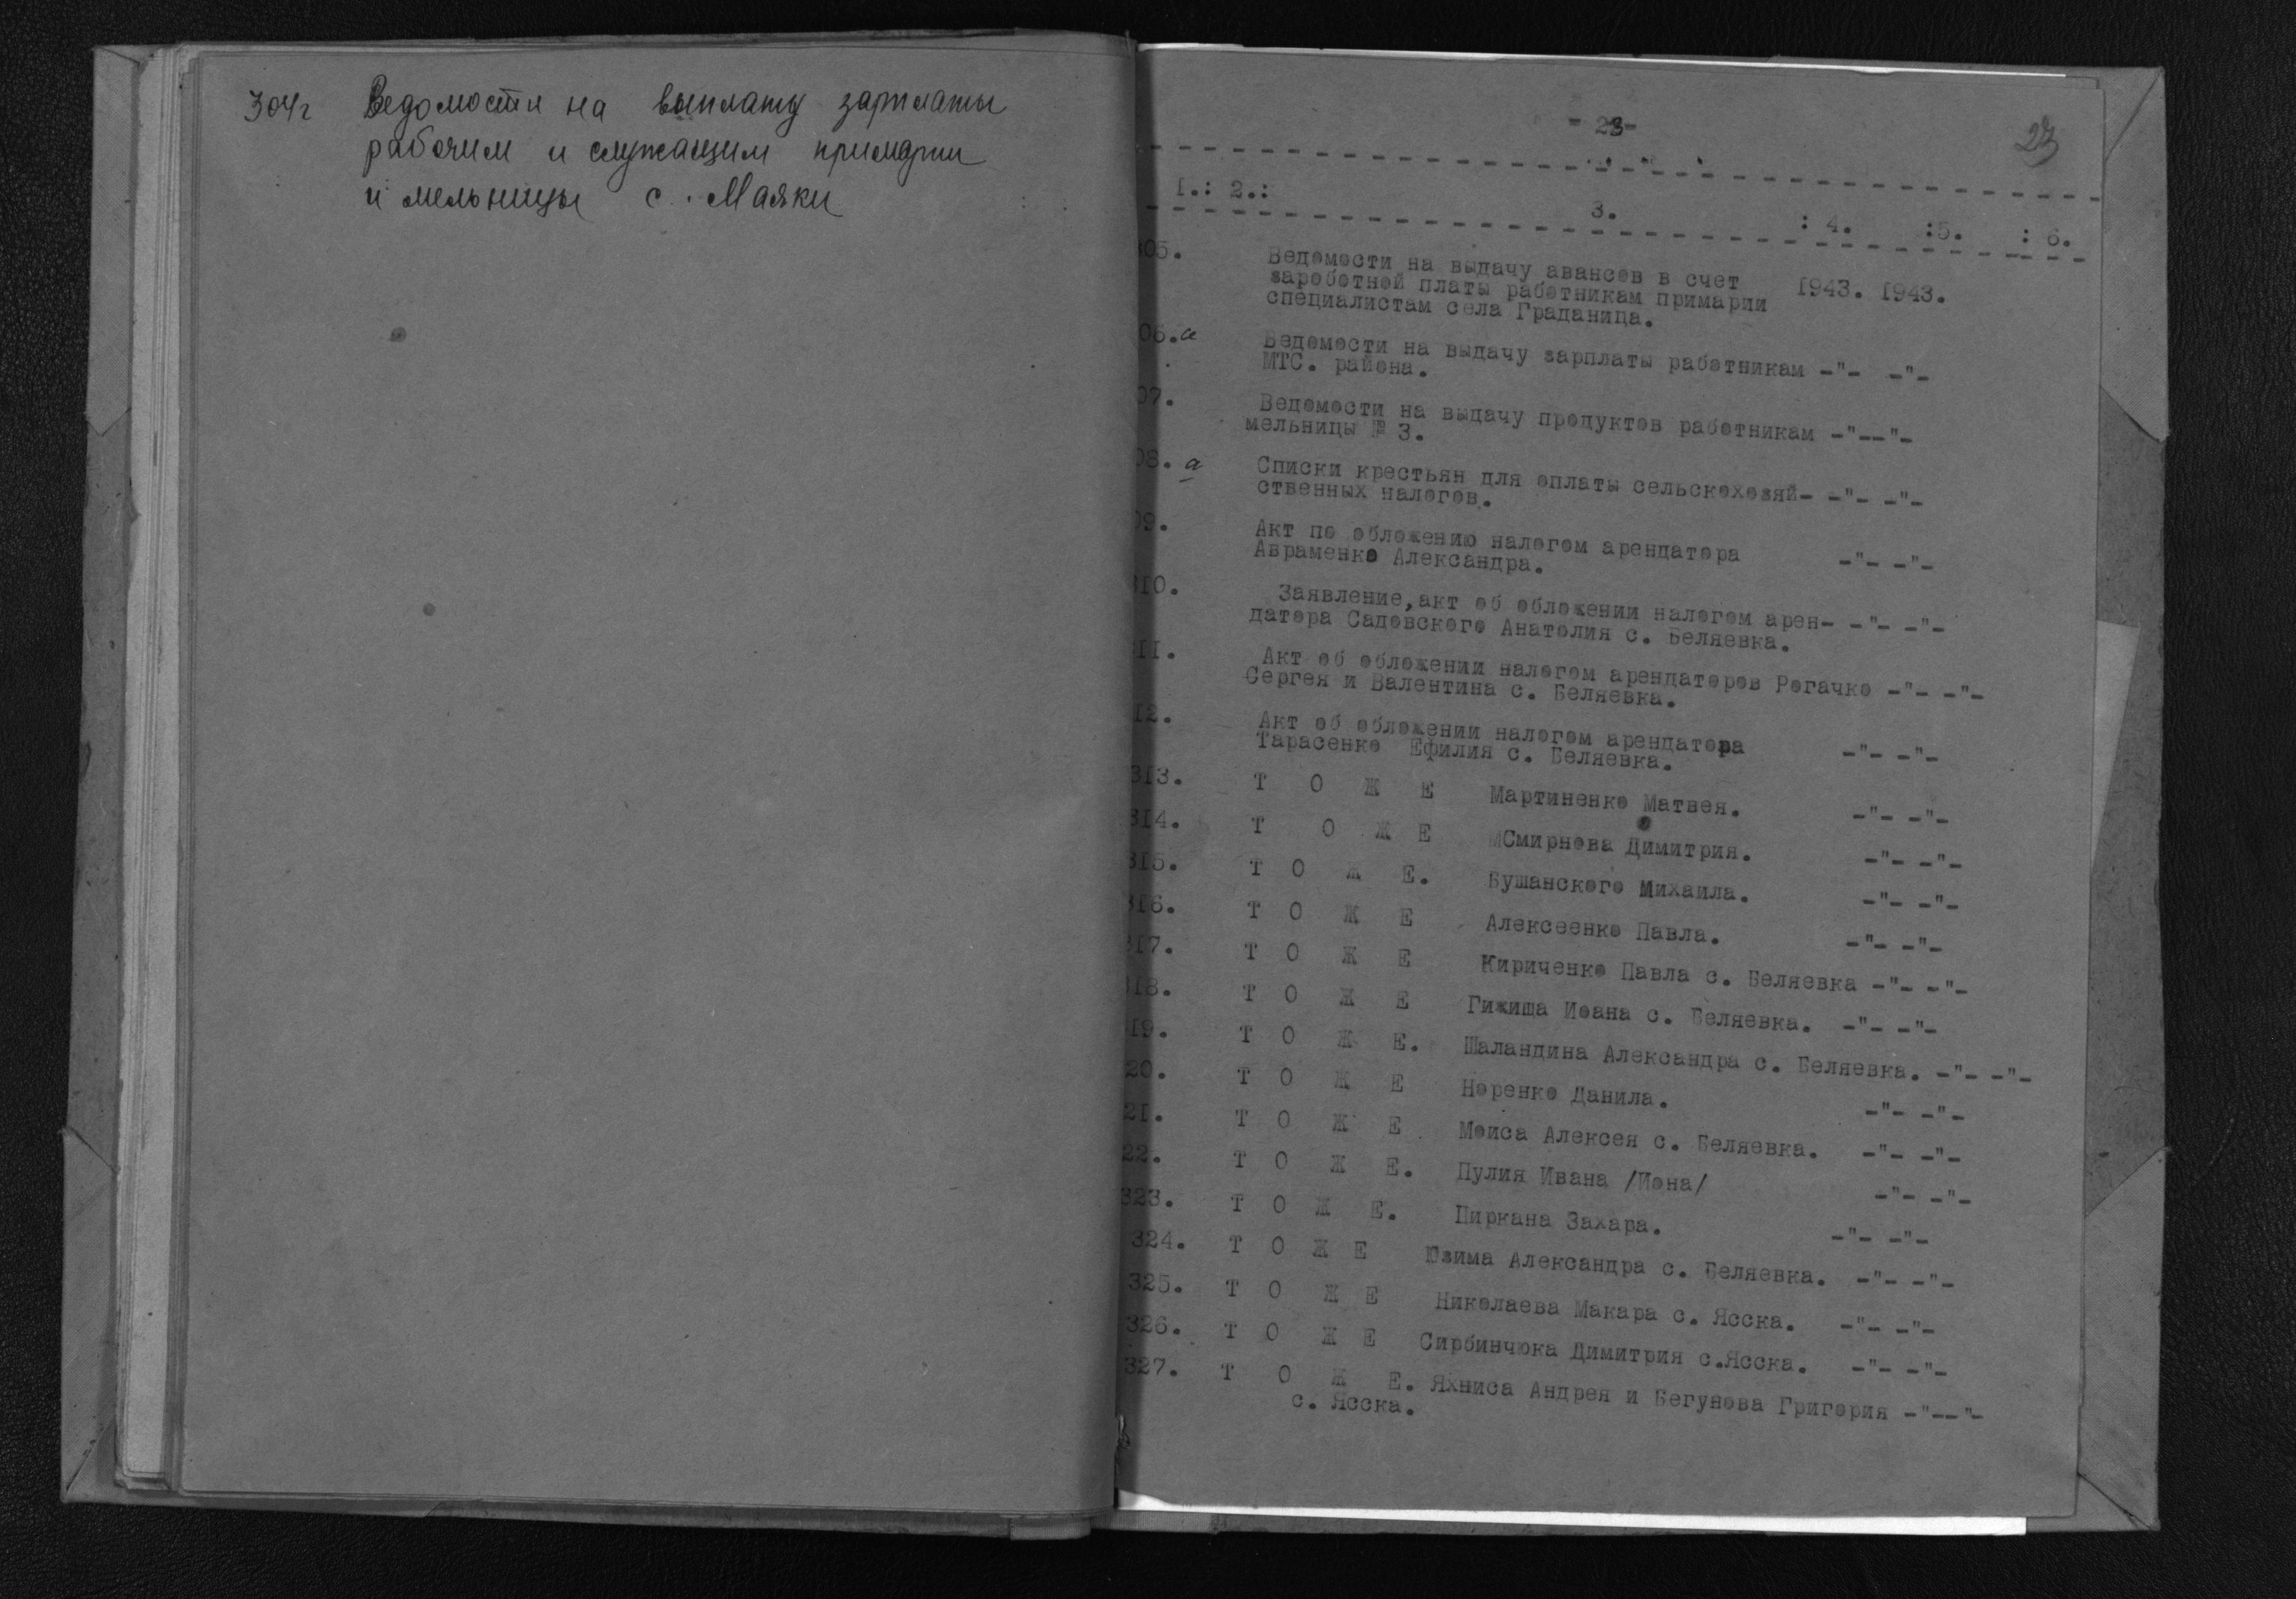 304г Ведомости на выплату зарплаты
рабочим и служащим примарии
и мельницы с. Маяки
- 23-
23
1.: 2.: 3. : 4. :5. : 6.
305. Ведомости на выдачу авансов в счет 1943. 1943.
зароботной платы работникам примарии
специалистам села Граданица.
06.а Ведомости на выдачу зарплаты работникам -"- -"-
МТС. района.
07. Ведомости на выдачу продуктов работникам -"--"-
мельницы № 3.
08. а Списки крестьян для оплаты сельскохозяй- -"- -"-
ственных налогов.
09. Акт по обложению налогом арендатора -"- -"-
Авраменко Александра.
310. Заявление,акт об обложении налогом арен- -"- -"-
датора Садовского Анатолия с. Беляевка.
311. Акт об обложении налогом арендаторов Рогачко -"- -"-
Сергея и Валентина с. Беляевка.
312. Акт об обложении налогом арендатора -"- -"-
Тарасенко Ефилия с. Беляевка.
313. Т О Ж Е Мартиненко Матвея. -"- -"-
314. Т О Ж Е Смирнова Димитрия. -"- -"-
315. Т О Ж Е. Бушанского Михаила. -"- -"-
316. Т О Ж Е Алексеенко Павла. -"- -"-
317. Т О Ж Е Кириченко Павла с. Беляевка -"- -"-
318. Т О Ж Е Гижица Иоана с. Беляевка. -"- -"-
19. Т О Ж Е. Шаландина Александра с. Беляевка. -"- -"-
20. Т О Ж Е Норенко Данила. -"- -"-
21. Т О Ж Е Моиса Алексея с. Беляевка. -"- -"-
22. Т О Ж Е. Пулия Ивана /Иона/ -"- -"-
323. Т О Ж Е. Пиркана Захара. -"- -"-
324. Т О Ж Е Юзима Александра с. Беляевка. -"- -"-
325. Т О Ж Е Николаева Макара с. Ясска. -"- -"-
326. Т О Ж Е Сирбинчюка Димитрия с.Ясска. -"- -"-
327. Т О Ж Е. Яхниса Андрея и Бегунова Григория -"--"-
с. Ясска.